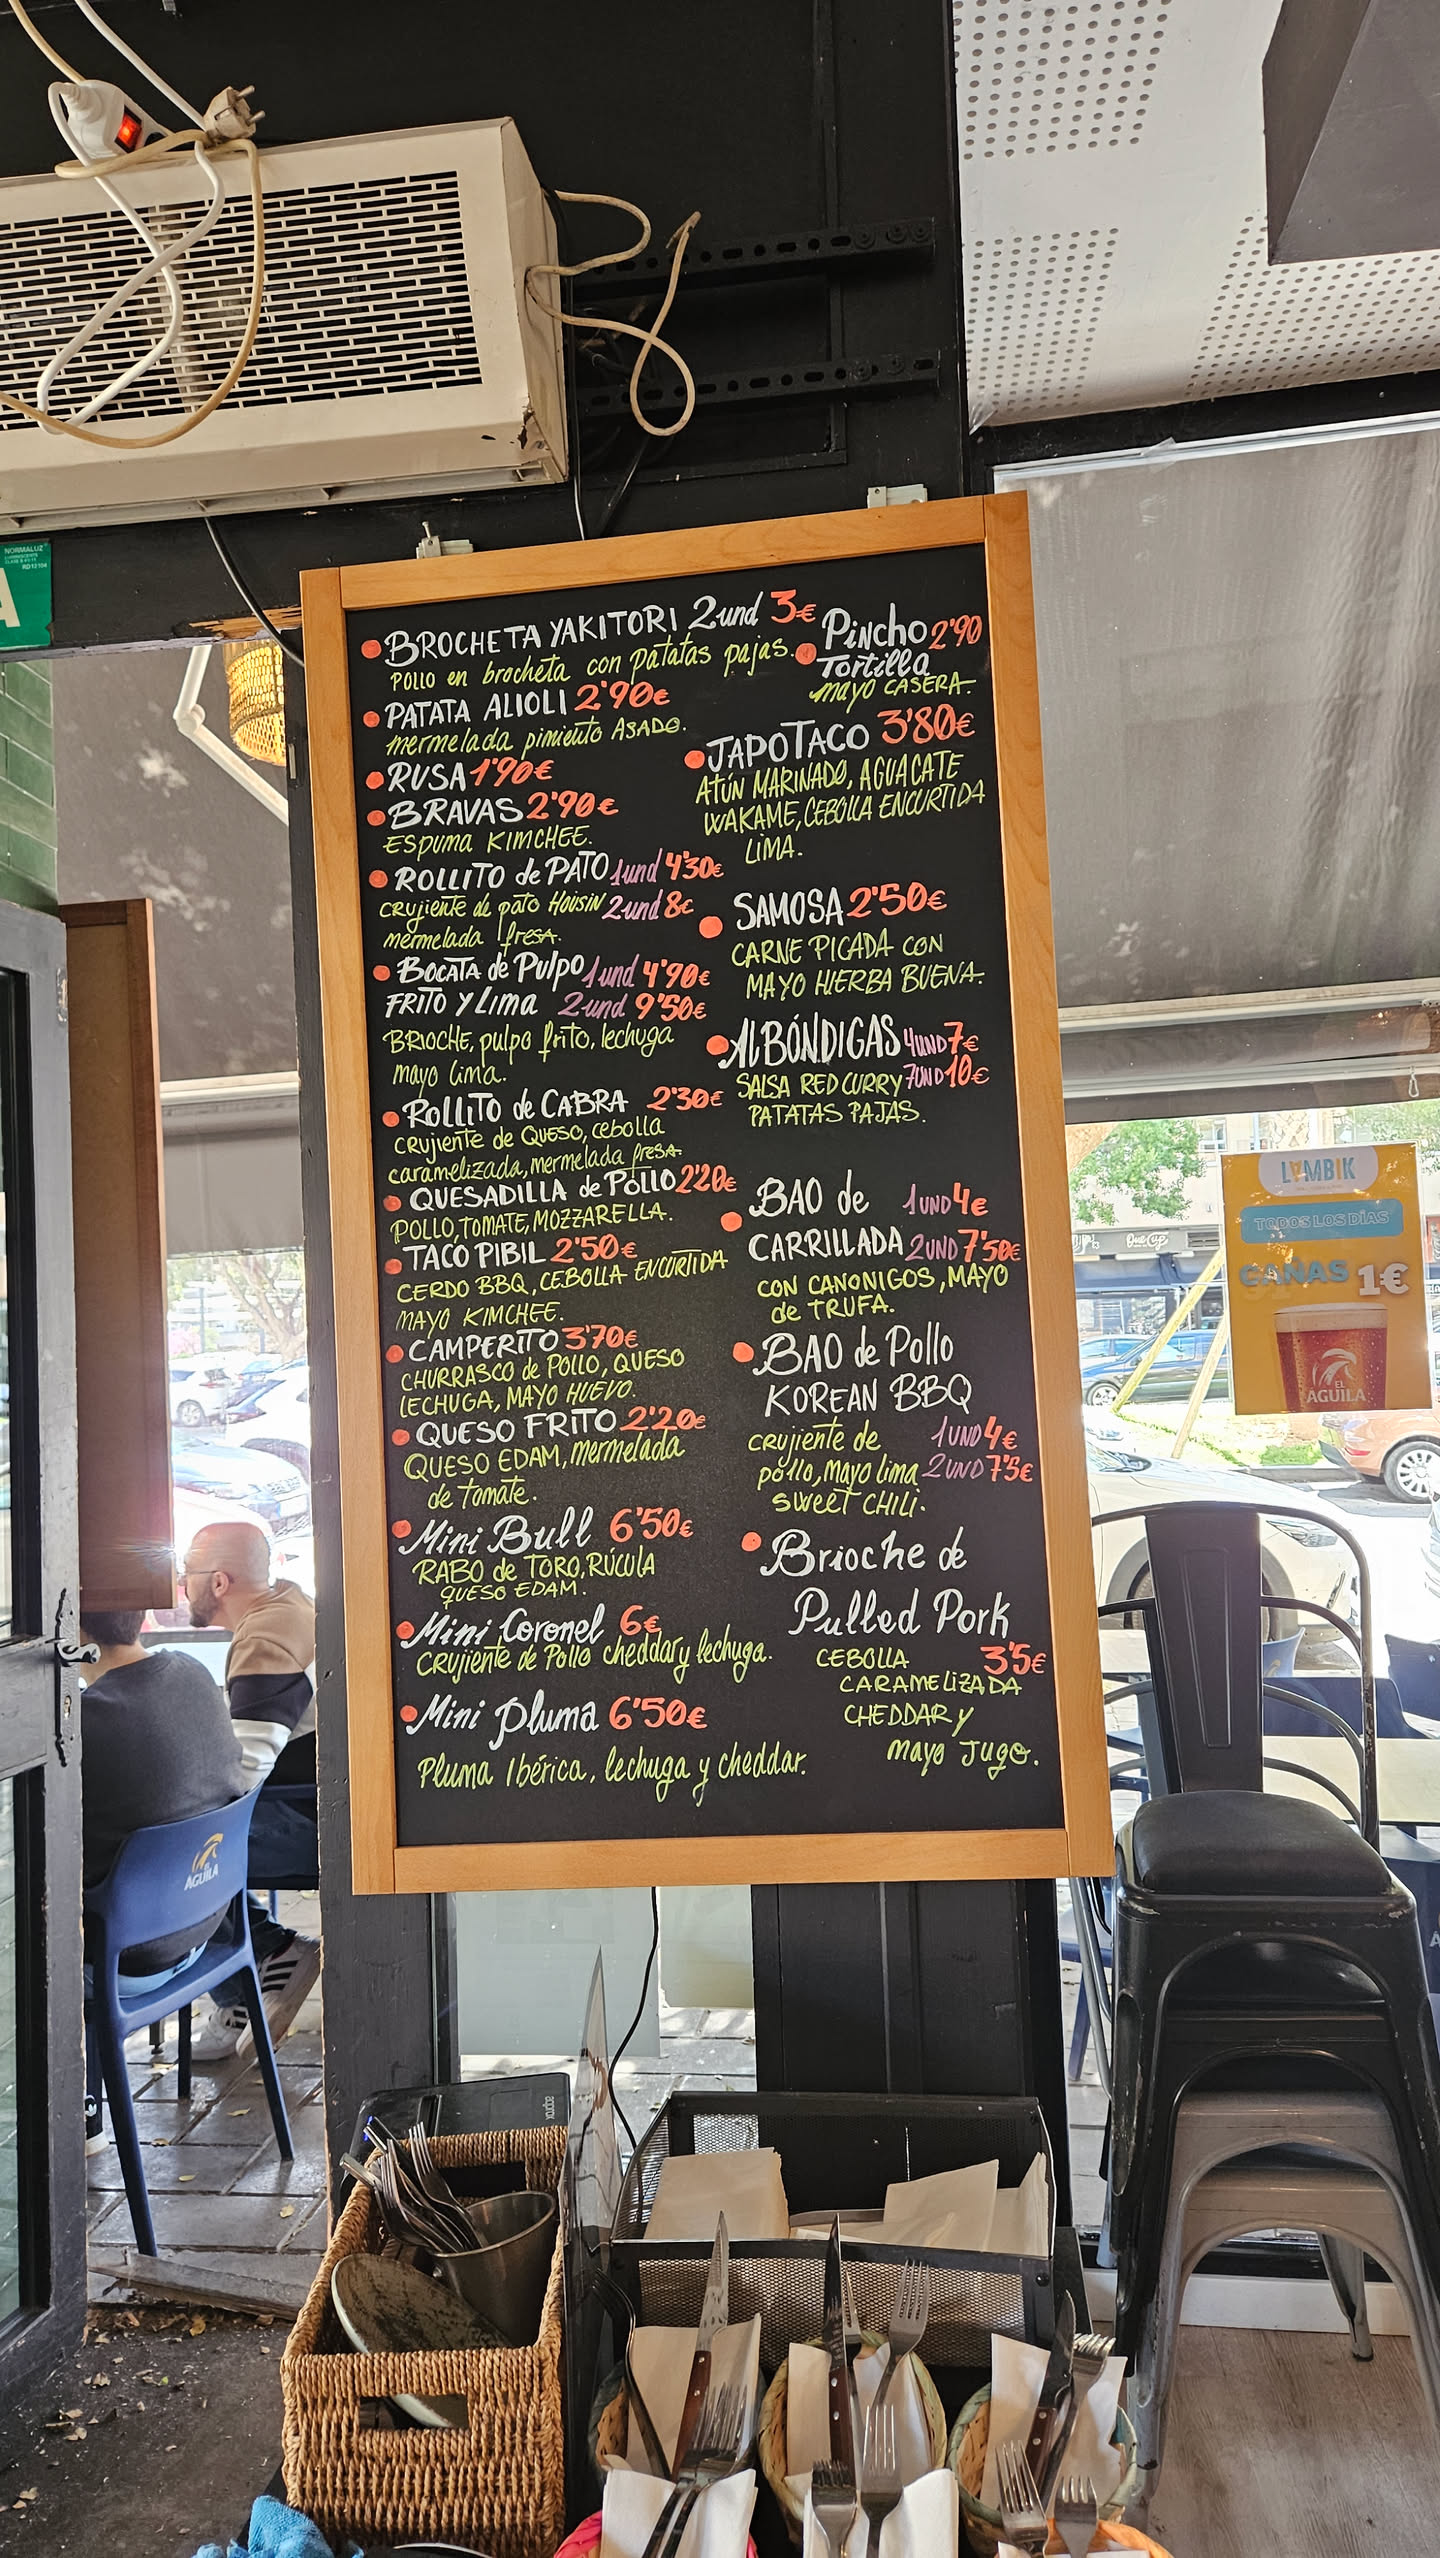 NORMALUZ
RD12104
A
BROCHETA YAKITORI 2und 3€
POLLO en brocheta con patatas pajas.
PATATA ALIOLI 2'90€
mermelada pimiento ASADO.
RUSA 1'90€
BRAVAS 2'90€
ESPUMA KIMCHEE.
ROLLITO de PATO 1und 4'30€
crujiente de pato HOUSIN 2und 8€
mermelada fresa.
BOCATA de Pulpo 1und 4'90€
FRITO Y LIMA 2und 9'50€
BRIOCHE, pulpo frito, lechuga
mayo lima.
ROLLITO de CABRA 2'30€
crujiente de QUESO, cebolla
caramelizada, mermelada fresa.
QUESADILLA de POLLO 2'20€
POLLO, TOMATE, MOZZARELLA.
TACO PIBIL 2'50€
CERDO BBQ, CEBOLLA ENCURTIDA
MAYO KIMCHEE.
CAMPERITO 3'70€
CHURRASCO de POLLO, QUESO
LECHUGA, MAYO HUEVO.
QUESO FRITO 2'20€
QUESO EDAM, mermelada
de tomate.
Mini Bull 6'50€
RABO de TORO, RÚCULA
QUESO EDAM.
Mini Coronel 6€
Crujiente de Pollo cheddar y lechuga.
Mini pluma 6'50€
Pluma Ibérica, lechuga y cheddar.
Pincho 2'90
Tortilla
mayo CASERA.
JAPOTACO 3'80€
ATÚN MARINADO, AGUACATE
WAKAME, CEBOLLA ENCURTIDA
LIMA.
SAMOSA 2'50€
CARNE PICADA CON
MAYO HIERBA BUENA.
ALBÓNDIGAS 4UND 7€
SALSA RED CURRY 7UND 10€
PATATAS PAJAS.
BAO de 1UND 4€
CARRILLADA 2UND 7'50€
CON CANONIGOS, MAYO
de TRUFA.
BAO de Pollo
KOREAN BBQ
crujiente de 1UND 4€
pollo, mayo lima 2UND 7'5€
SWEET CHILI.
Brioche de
Pulled Pork
CEBOLLA 3'5€
CARAMELIZADA
CHEDDAR y
mayo Jugo.
LAMBIK
TODOS LOS DÍAS
CAÑAS 1€
EL
AGUILA
Que Cup
EL
AGUILA
approx